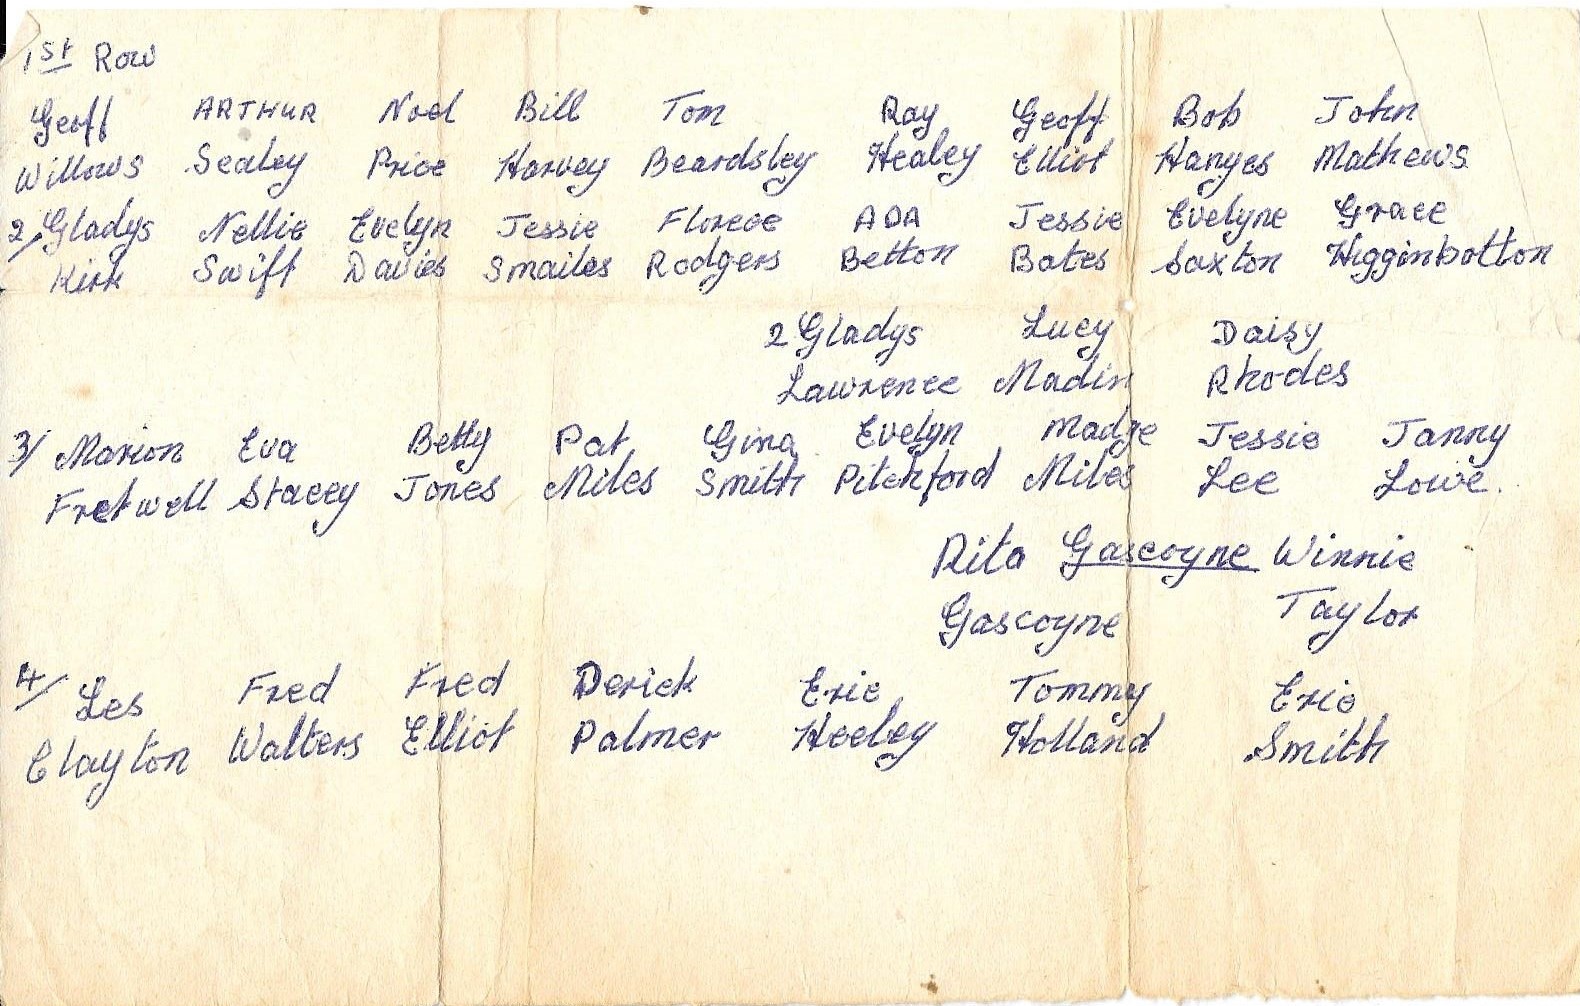 1st Row
Geoff ARTHUR Noel Bill Tom Ray Geoff Bob John
Willows Sealey Price Harvey Beardsley Healey Elliot Hanges Mathews
2/ Gladys Nellie Evelyn Jessie Florece ADA Jessie Evelyne Grace
Kirk Swift Davies Smailes Rodgers Betton Bates Saxton Higginbotton
2 Gladys Lucy Daisy
Lawrence Madin Rhodes
3/ Marion Eva Betty Pat Gina Evelyn Madge Jessie Janny
Fretwell Stacey Jones Miles Smith Pitchford Miles Lee Lowe.
Rita Gascoyne Winnie
Gascoyne Taylor
4/ Les Fred Fred Derick Eric Tommy Eric
Clayton Walters Elliot Palmer Heeley Holland Smith